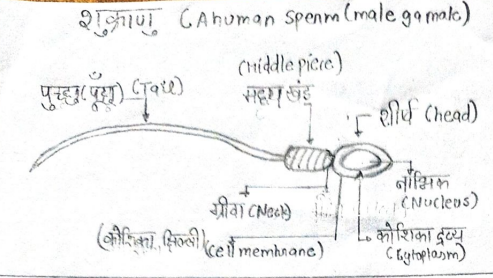 शुक्राणु (A human sperm (male gamate)
(Middle piece)
मध्य खंड
पुच्छ (पूँछ) (Tail)
शीर्ष (head)
नाभिक
(Nucleus)
ग्रीवा (Neck)
कोशिका द्रव्य
(Cytoplasm)
(कोशिका झिल्ली) (cell membrane)